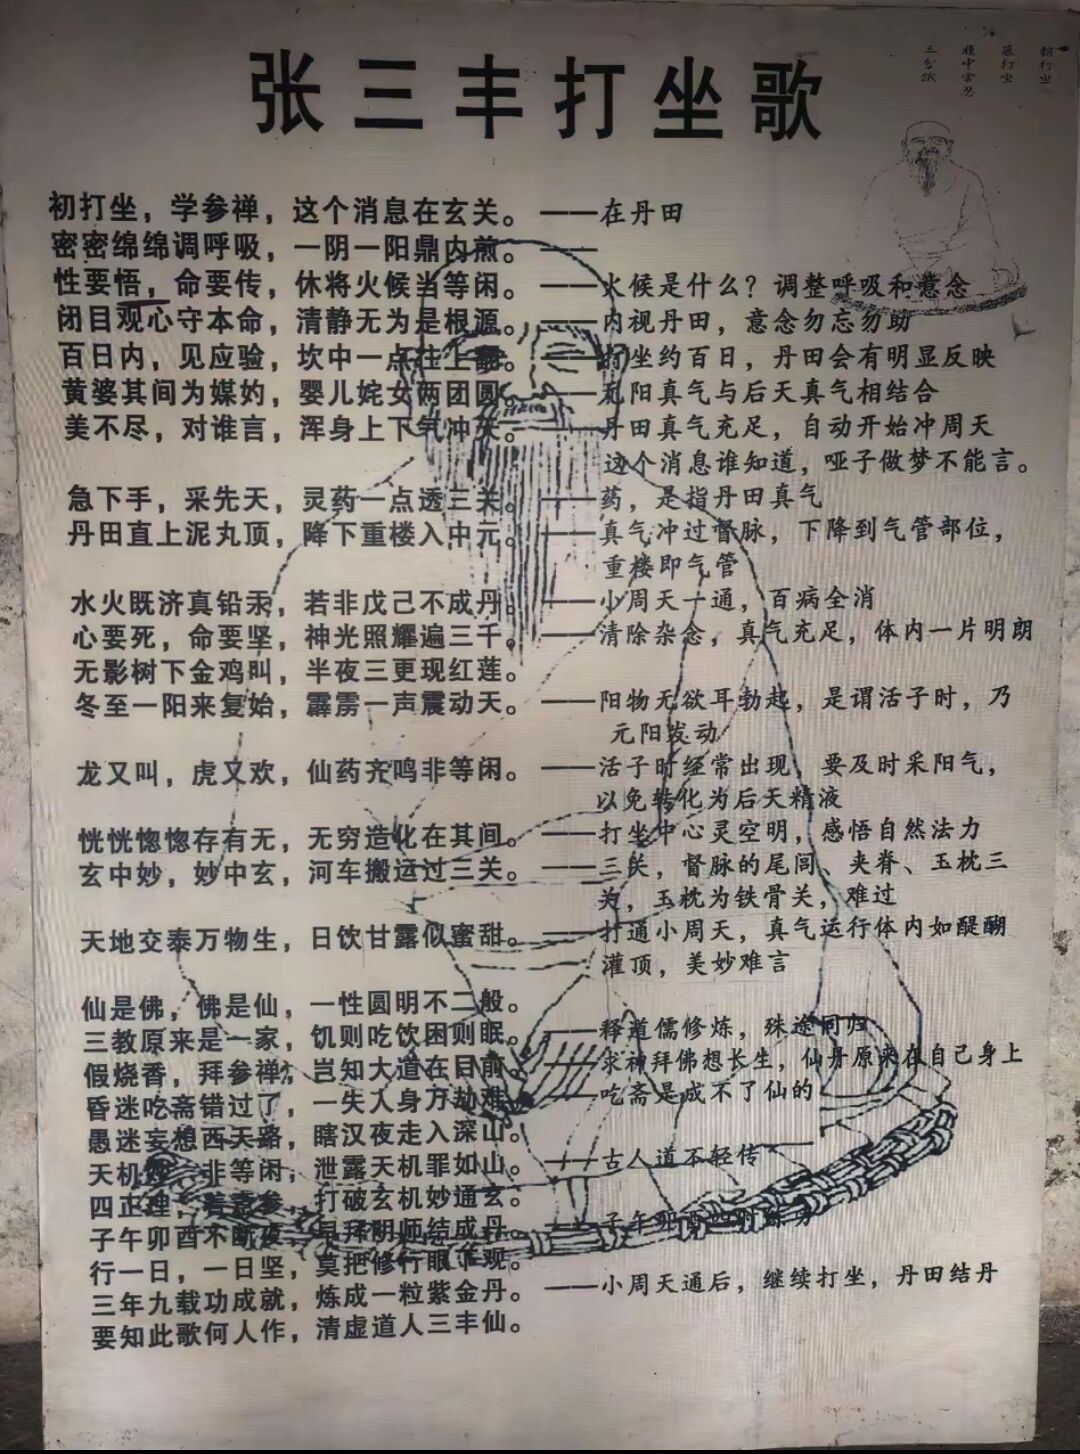 张三丰打坐歌
朝打坐
暮打坐
腹中常忍
三分饥
初打坐，学参禅，这个消息在玄关。——在丹田
密密绵绵调呼吸，一阴一阳鼎内煎。——
性要悟，命要传，休将火候当等闲。——火候是什么？调整呼吸和意念
闭目观心守本命，清静无为是根源。——内视丹田，意念勿忘勿助
百日内，见应验，坎中一点往上翻。——打坐约百日，丹田会有明显反映
黄婆其间为媒妁，婴儿姹女两团圆。——元阳真气与后天真气相结合
美不尽，对谁言，浑身上下气冲天。——丹田真气充足，自动开始冲周天
这个消息谁知道，哑子做梦不能言。
急下手，采先天，灵药一点透三关。——药，是指丹田真气
丹田直上泥丸顶，降下重楼入中元。——真气冲过督脉，下降到气管部位，
重楼即气管
水火既济真铅汞，若非戊己不成丹。——小周天一通，百病全消
心要死，命要坚，神光照耀遍三千。——清除杂念，真气充足，体内一片明朗
无影树下金鸡叫，半夜三更现红莲。
冬至一阳来复始，霹雳一声震动天。——阳物无欲耳勃起，是谓活子时，乃
元阳发动
龙又叫，虎又欢，仙药齐鸣非等闲。——活子时经常出现，要及时采阳气，
以免转化为后天精液
恍恍惚惚存有无，无穷造化在其间。——打坐中心灵空明，感悟自然法力
玄中妙，妙中玄，河车搬运过三关。——三关，督脉的尾闾、夹脊、玉枕三
关，玉枕为铁骨关，难过
天地交泰万物生，日饮甘露似蜜甜。——打通小周天，真气运行体内如醍醐
灌顶，美妙难言
仙是佛，佛是仙，一性圆明不二般。
三教原来是一家，饥则吃饮困则眠。——释道儒修炼，殊途同归
假烧香，拜参禅，岂知大道在目前。——求神拜佛想长生，仙丹原来在自己身上
昏迷吃斋错过了，一失人身万劫难。——吃斋是成不了仙的
愚迷妄想西天路，瞎汉夜走入深山。
天机妙，非等闲，泄露天机罪如山。——古人道不轻传
四正理，着意参，打破玄机妙通玄。
子午卯酉不断夜，早拜明师结成丹。——子午卯酉四时练功
行一日，一日坚，莫把修行眼下观。
三年九载功成就，炼成一粒紫金丹。——小周天通后，继续打坐，丹田结丹
要知此歌何人作，清虚道人三丰仙。